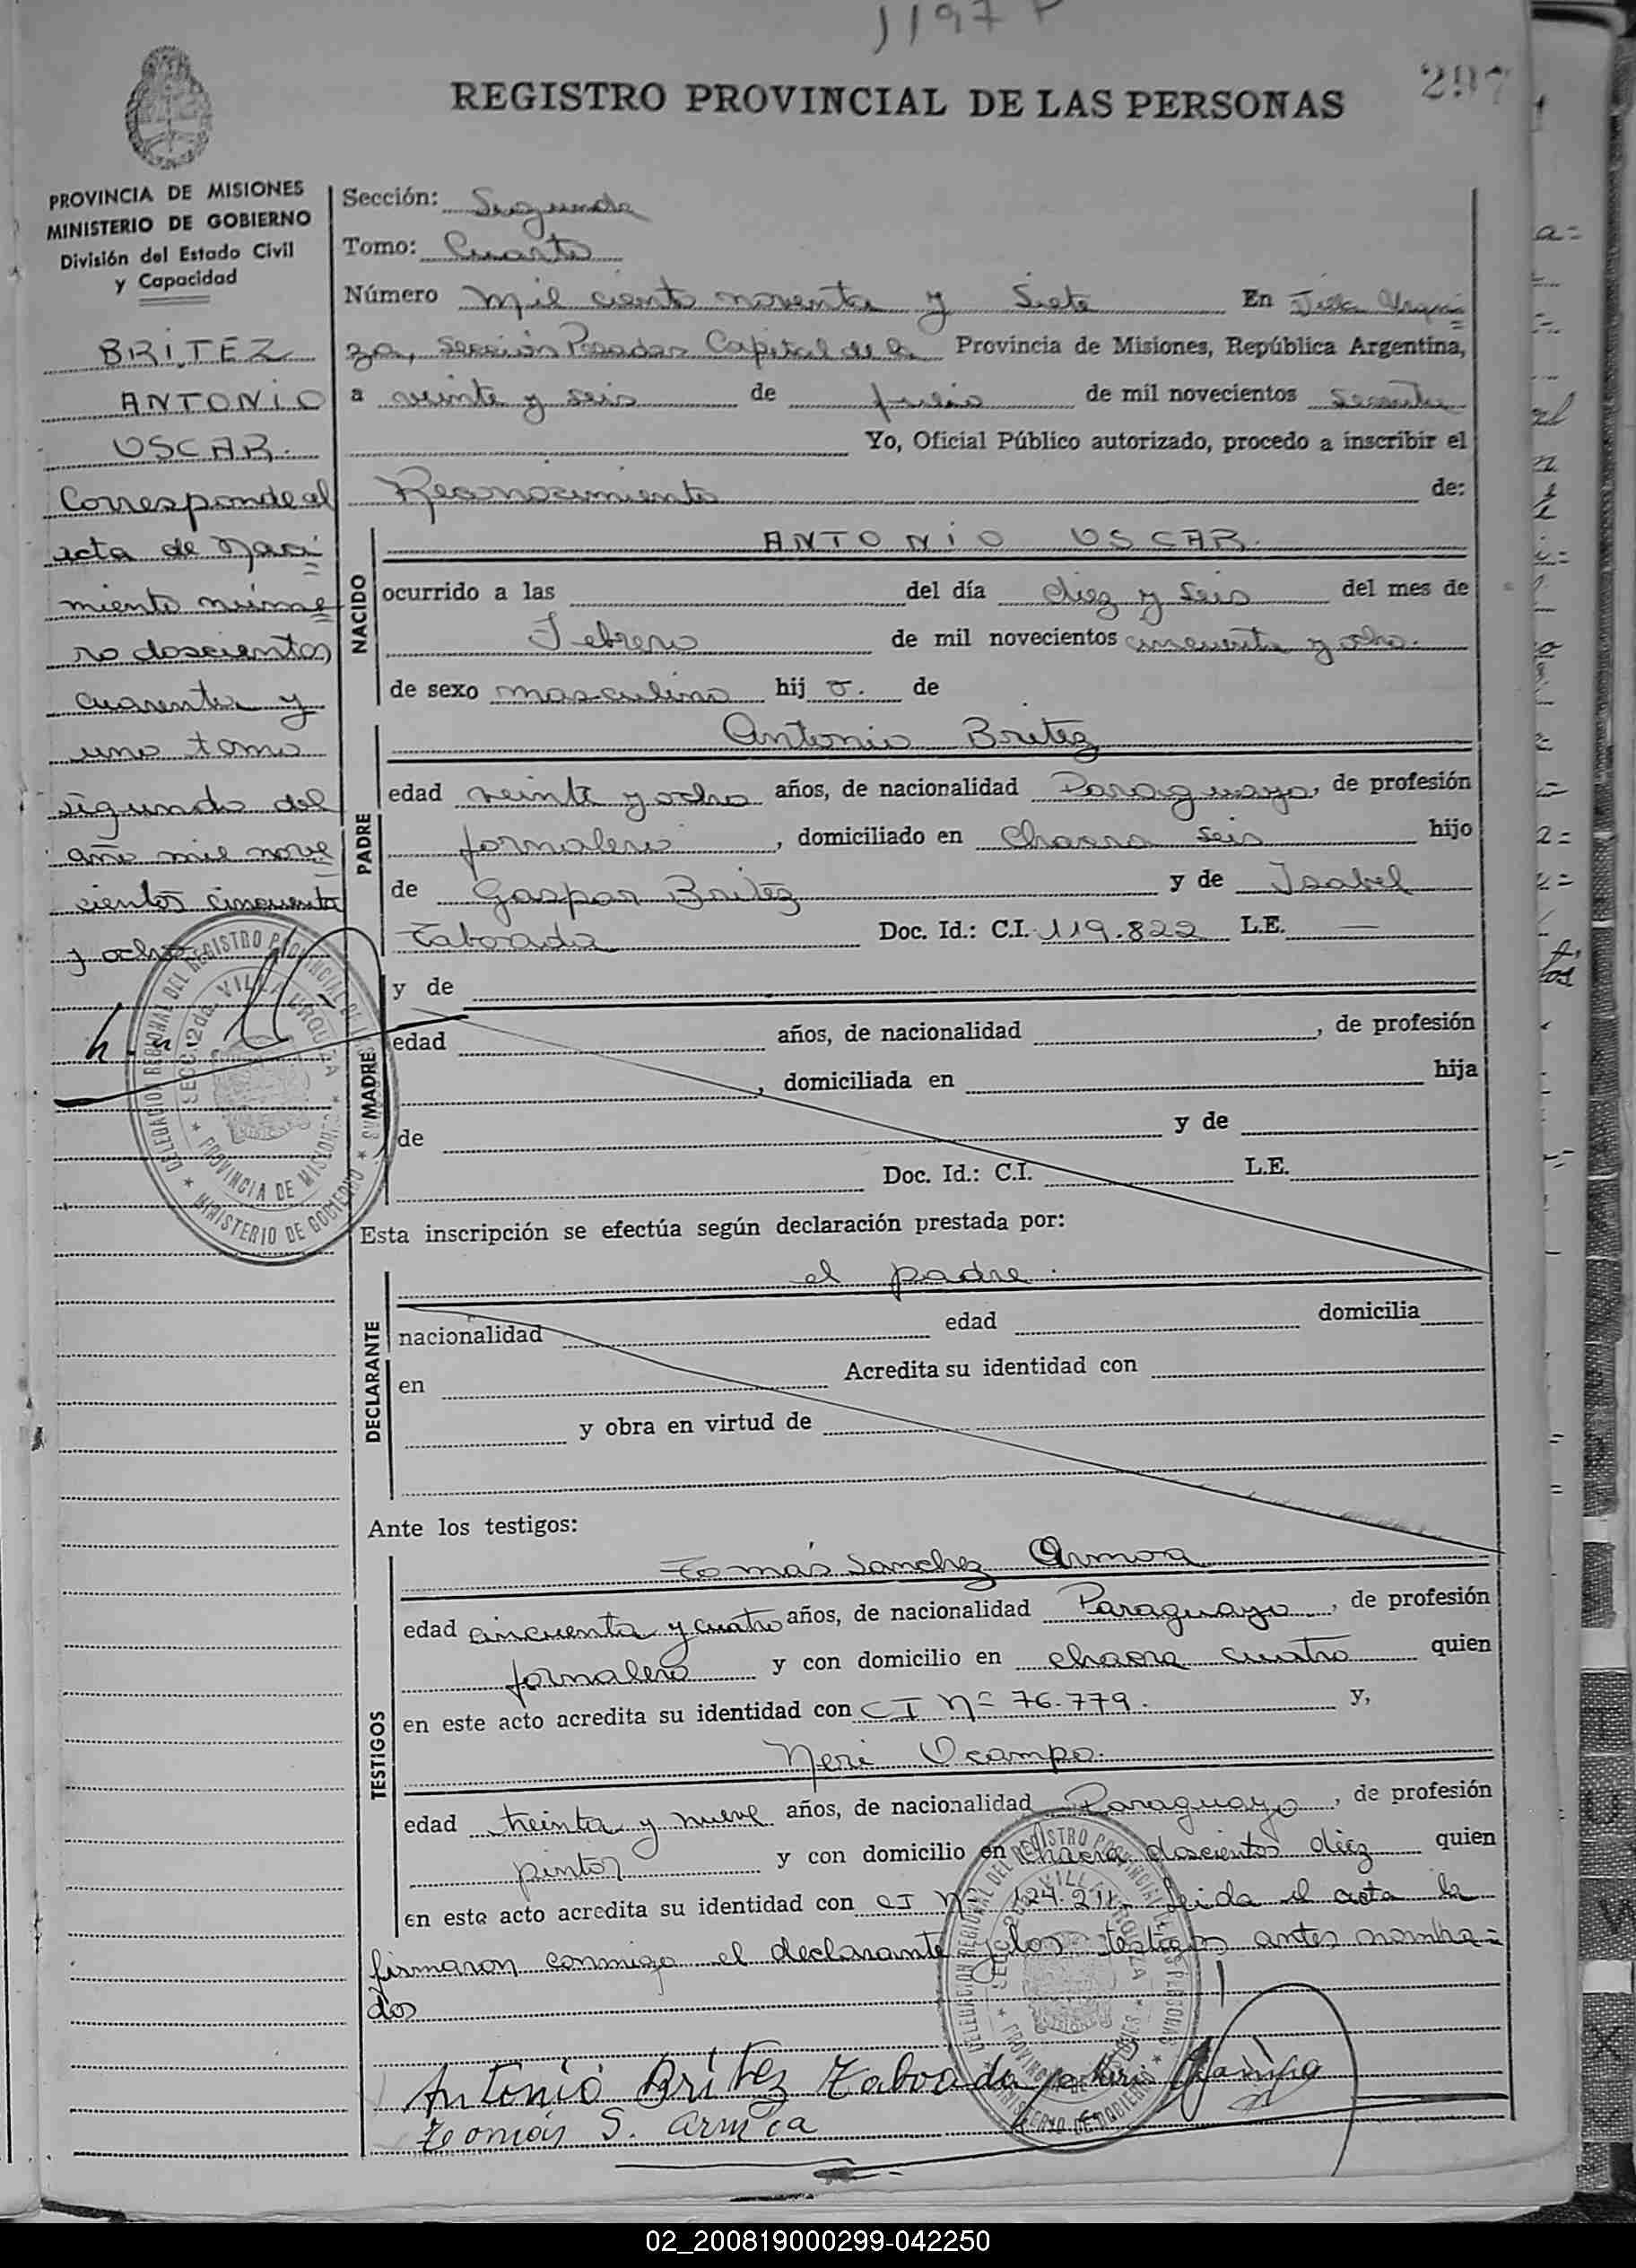 1197 P
297
REGISTRO PROVINCIAL DE LAS PERSONAS
PROVINCIA DE MISIONES
MINISTERIO DE GOBIERNO
División del Estado Civil
y Capacidad
BRITEZ
ANTONIO
OSCAR.
Corresponde al
acta de Naci=
miento núme=
ro doscientos
cuarenta y
uno tomo
segundo del
año mil nove=
cientos cincuenta
y ocho
Sección: Segunda
Tomo: Cuarto
Número mil ciento noventa y siete En Villa Urqui=
za, Sección Posadas Capital de la Provincia de Misiones, República Argentina,
a veinte y seis de julio de mil novecientos sesenta
Yo, Oficial Público autorizado, procedo a inscribir el
Reconocimiento de:
NACIDO
ANTONIO OSCAR.
ocurrido a las del día diez y seis del mes de
Febrero de mil novecientos cincuenta y ocho.
de sexo masculino hijo. de
PADRE
Antonio Britez
edad veinte y ocho años, de nacionalidad Paraguaya, de profesión
jornalero, domiciliado en Chacra seis hijo
de Gaspar Britez y de Isabel
Taboada Doc. Id.: C.I. 119.822 L.E. —
MADRE
y de
edad años, de nacionalidad , de profesión
, domiciliada en hija
de y de
Doc. Id.: C.I. L.E.
Esta inscripción se efectúa según declaración prestada por:
DECLARANTE
el padre.
nacionalidad edad domicilia
en Acredita su identidad con
y obra en virtud de
Ante los testigos:
TESTIGOS
Tomás Sanchez Armoa
edad cincuenta y cuatro años, de nacionalidad Paraguayo, de profesión
jornalero y con domicilio en chacra cuatro quien
en este acto acredita su identidad con CI Nº 76.779. y,
Neri Ocampo.
edad treinta y nueve años, de nacionalidad Paraguayo, de profesión
pintor y con domicilio en chacra doscientos diez quien
en este acto acredita su identidad con CI Nº 124.211. Leida el acta la
firmaron conmigo el declarante y los testigos antes nombra=
dos
Antonio Britez Taboada Neri Ocampo
Tomás S. Armoa
DELEGACION REGIONAL DEL REGISTRO PROVINCIAL DE LAS PERSONAS
SECC. 2da. VILLA URQUIZA
PROVINCIA DE MISIONES
MINISTERIO DE GOBIERNO
02_200819000299-042250